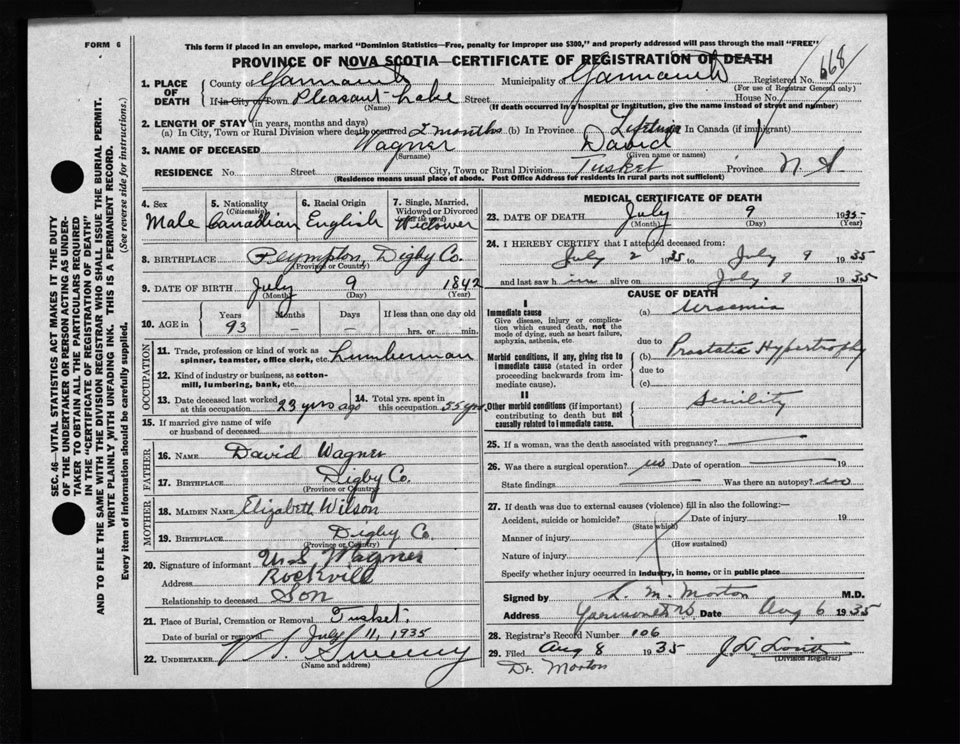 FORM 6
This form if placed in an envelope, marked "Dominion Statistics—Free, penalty for improper use $300," and properly addressed will pass through the mail "FREE"
PROVINCE OF NOVA SCOTIA—CERTIFICATE OF REGISTRATION OF DEATH
668
1. PLACE OF DEATH County of Yarmouth Municipality of Yarmouth Registered No. (For use of Registrar General only)
If in City or Town Pleasant Lake (Name) Street House No.
(If death occurred in a hospital or institution, give the name instead of street and number)
2. LENGTH OF STAY (in years, months and days)
(a) In City, Town or Rural Division where death occurred 2 months (b) In Province Lifetime In Canada (if immigrant)
3. NAME OF DECEASED Wagner (Surname) David (Given name or names)
RESIDENCE No. Street City, Town or Rural Division Tusket Province N. S.
(Residence means usual place of abode. Post Office Address for residents in rural parts not sufficient)
SEC. 46—VITAL STATISTICS ACT MAKES IT THE DUTY
OF THE UNDERTAKER OR PERSON ACTING AS UNDER-
TAKER TO OBTAIN ALL THE PARTICULARS REQUIRED
IN THE "CERTIFICATE OF REGISTRATION OF DEATH"
AND TO FILE THE SAME WITH THE DIVISION REGISTRAR WHO SHALL ISSUE THE BURIAL PERMIT.
WRITE PLAINLY WITH UNFADING INK. THIS IS A PERMANENT RECORD.
Every item of information should be carefully supplied. (See reverse side for instructions.)
4. Sex Male
5. Nationality (Citizenship) Canadian
6. Racial Origin English
7. Single, Married, Widowed or Divorced Widower
8. BIRTHPLACE Plympton, Digby Co. (Province or Country)
9. DATE OF BIRTH July (Month) 9 (Day) 1842 (Year)
10. AGE in Years 93 Months — Days — If less than one day old hrs. or min.
OCCUPATION
11. Trade, profession or kind of work as spinner, teamster, office clerk, etc. Lumberman
12. Kind of industry or business, as cotton-mill, lumbering, bank, etc.
13. Date deceased last worked at this occupation 23 yrs ago
14. Total yrs. spent in this occupation 55 yrs.
15. If married give name of wife or husband of deceased
FATHER
16. Name David Wagner
17. BIRTHPLACE Digby Co. (Province or Country)
MOTHER
18. MAIDEN NAME Elizabeth Wilson
19. BIRTHPLACE Digby Co. (Province or Country)
20. Signature of informant Wagner
Address Rockville
Relationship to deceased Son
21. Place of Burial, Cremation or Removal Tusket,
Date of burial or removal July 11, 1935
22. UNDERTAKER Sweeny (Name and address)
MEDICAL CERTIFICATE OF DEATH
23. DATE OF DEATH July (Month) 9 (Day) 1935 (Year)
24. I HEREBY CERTIFY that I attended deceased from:
July 2 1935 to July 9 1935
and last saw him alive on July 9 1935
CAUSE OF DEATH
I
Immediate cause (a) Uraemia
Give disease, injury or complication which caused death, not the mode of dying, such as heart failure, asphyxia, asthenia, etc.
due to
Morbid conditions, if any, giving rise to immediate cause (stated in order proceeding backwards from immediate cause). (b) Prostatic Hypertrophy
due to
(c)
II
Other morbid conditions (if important) contributing to death but not causally related to immediate cause. Senility
25. If a woman, was the death associated with pregnancy?
26. Was there a surgical operation? no Date of operation 19
State findings Was there an autopsy? no
27. If death was due to external causes (violence) fill in also the following:—
Accident, suicide or homicide? (State which) Date of injury 19
Manner of injury (How sustained)
Nature of injury
Specify whether injury occurred in industry, in home, or in public place
Signed by L. M. Morton M.D.
Address Yarmouth NS Date Aug 6 1935
28. Registrar's Record Number 106
29. Filed Aug 8 1935 (Division Registrar)
Dr. Morton